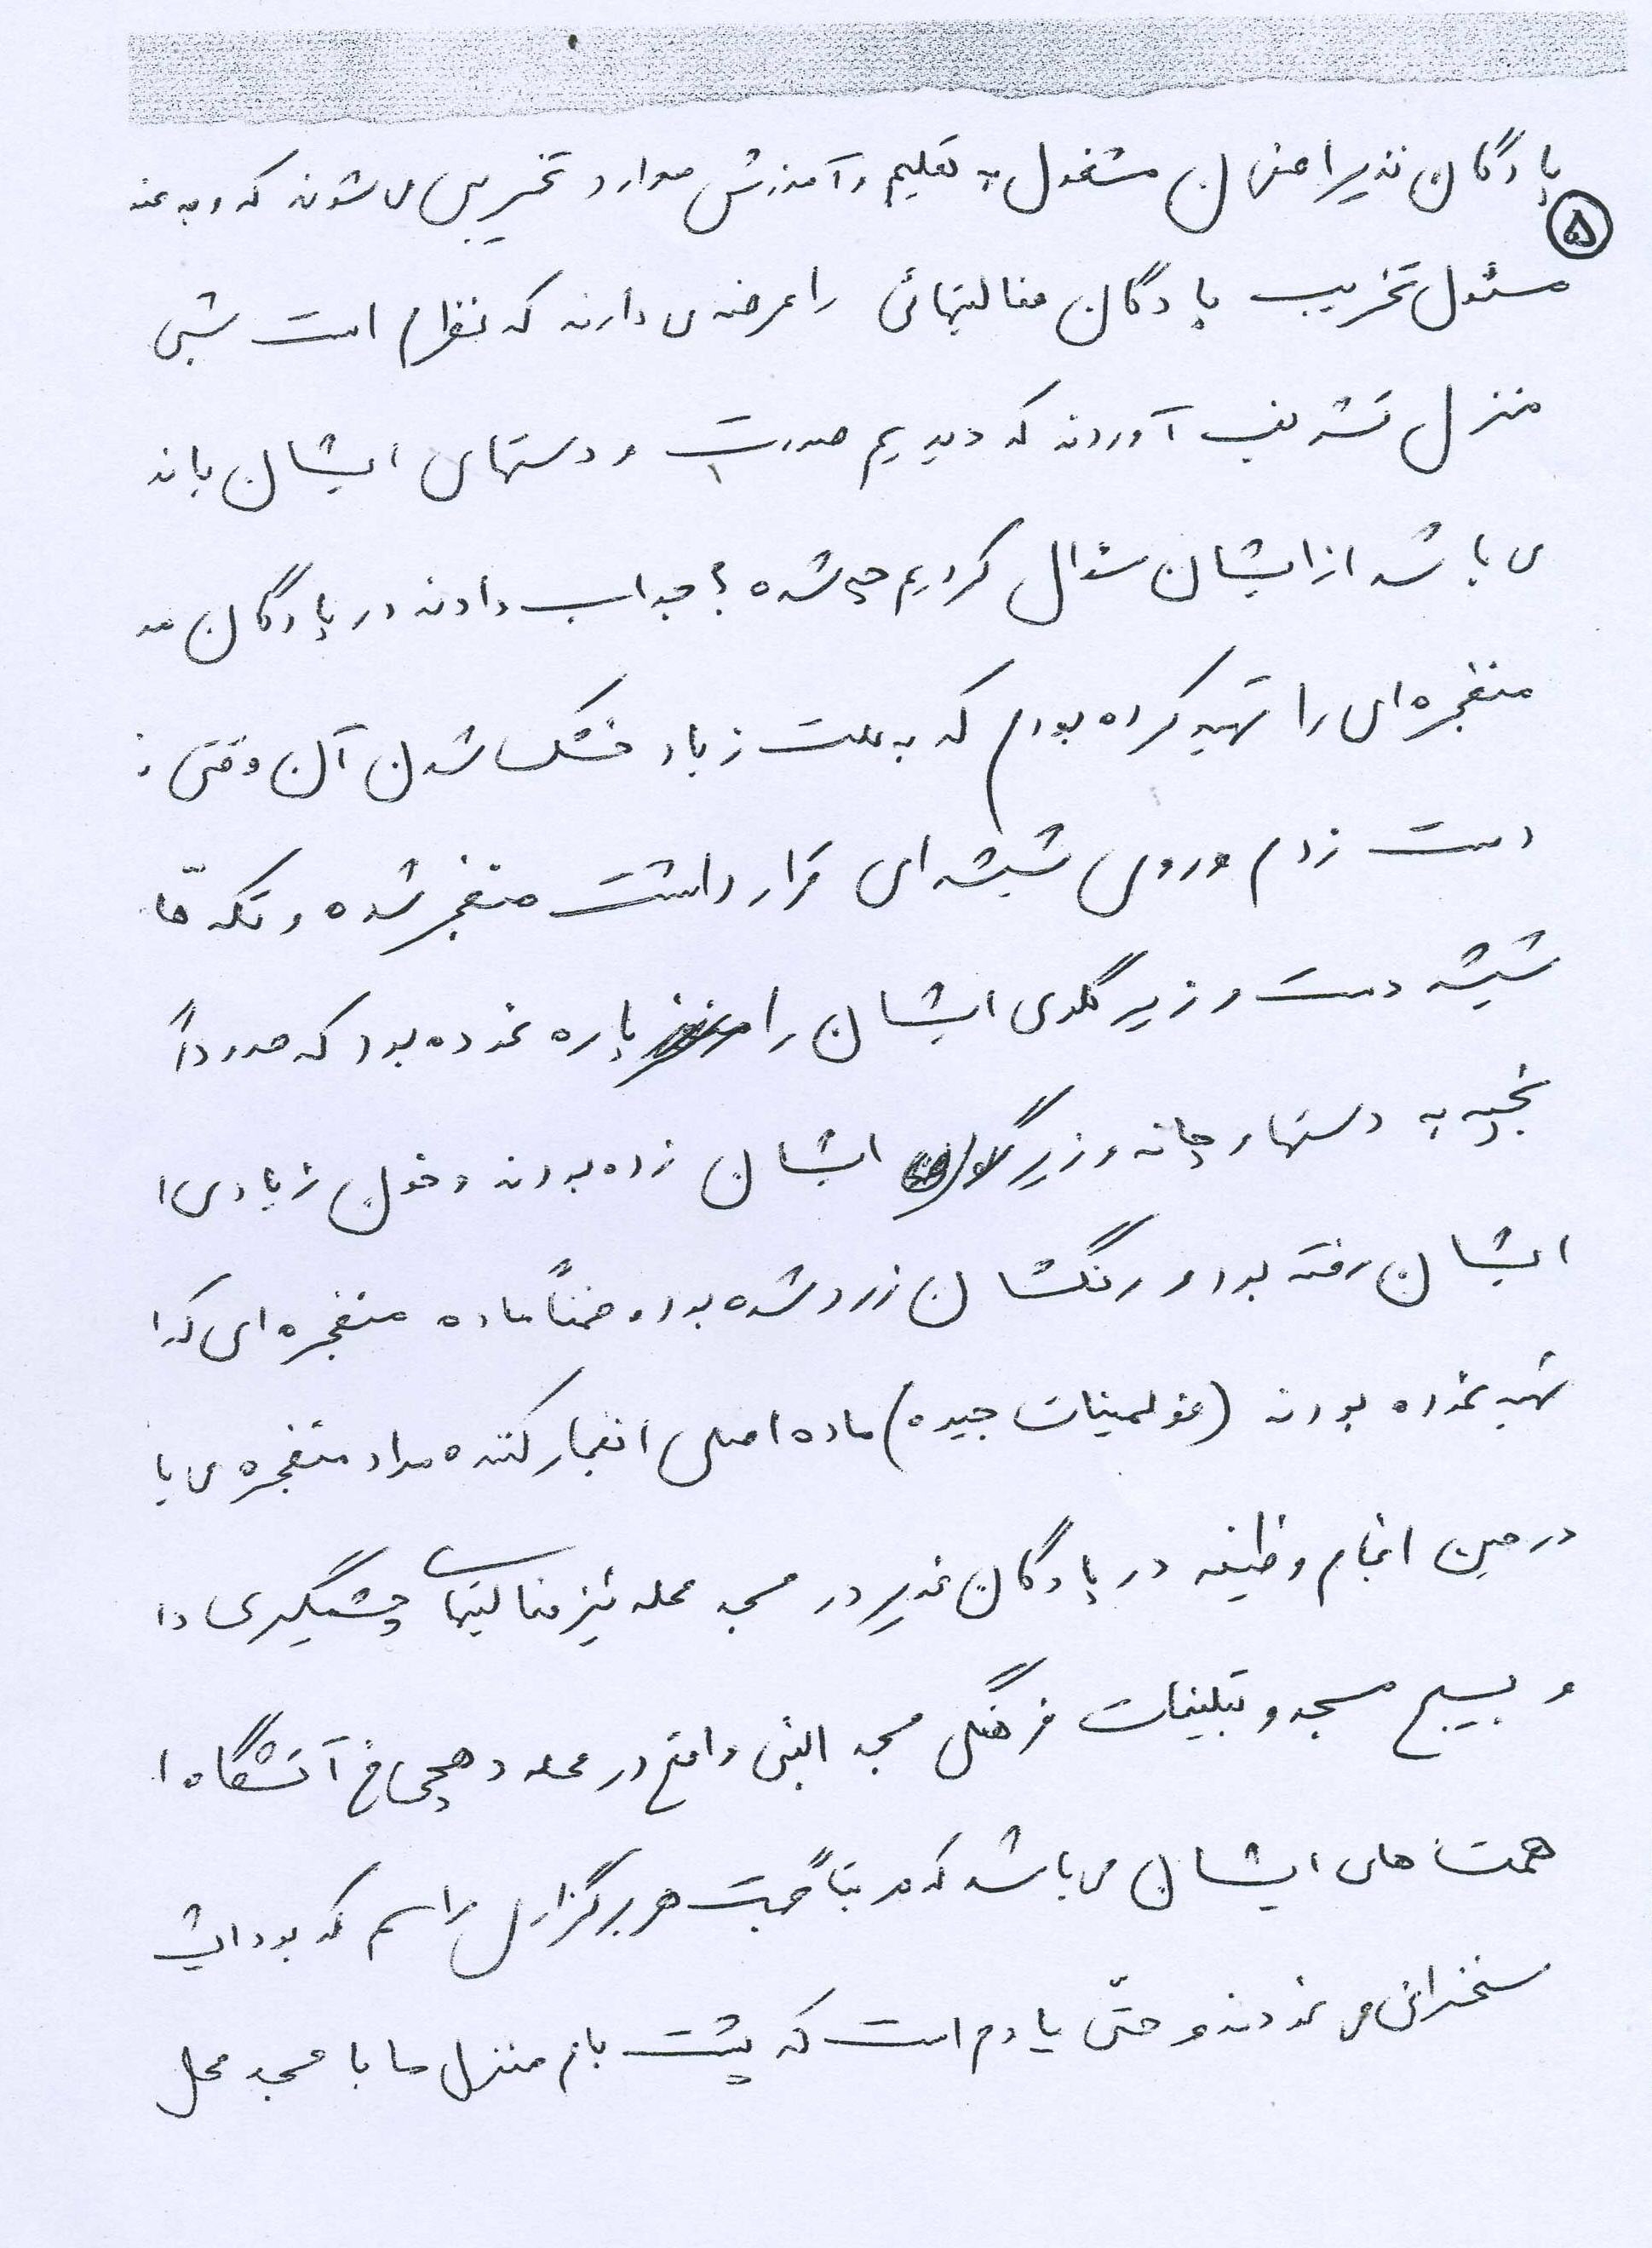 پادگان غدیر اصفهان مشغول به تعلیم و آموزش موارد تخریبی می شوند که و به عنـ
۵
مسئول تخریب پادگان فعالیتهائی را عرضه می دارند که نظرم است شبی
منزل تشریف آوردند که دیدیم صورت و دستهای ایشان باند
می باشد از ایشان سئوال کردیم چی شده؟ جواب دادند در پادگان مـ
منفجره ای را تهیه کرده بودم که به علت زیاد خشک شدن آن وقتی
دست زدم و روی شیشه ای قرار داشت منفجر شده و تکه ها
شیشه دست و زیر گلوی ایشان را پاره نموده بود که حدوداً
بخیه به دستها و چانه و زیر گلوی ایشان زده بودند و خون زیادی ا
ایشان رفته بود و رنگشان زرد شده بود و ضمناً ماده منفجره ای که ا
تهیه نموده بودند (فولمینات جیوه) ماده اصلی انفجار کننده مواد منفجره می با
در حین انجام وظیفه در پادگان غدیر در مسجد محله نیز فعالیتهای چشمگیری دا
و بسیج مسجد و تبلیغات فرهنگی مسجد النبی واقع در محله دهچی خ آتشگاه ا
همت های ایشان می باشد که مرتباً جهت هر برگزاری مراسم که بود ایشـ
سخنرانی می نمودند و حتّی یادم است که پشت بام منزل ما با مسجد محل